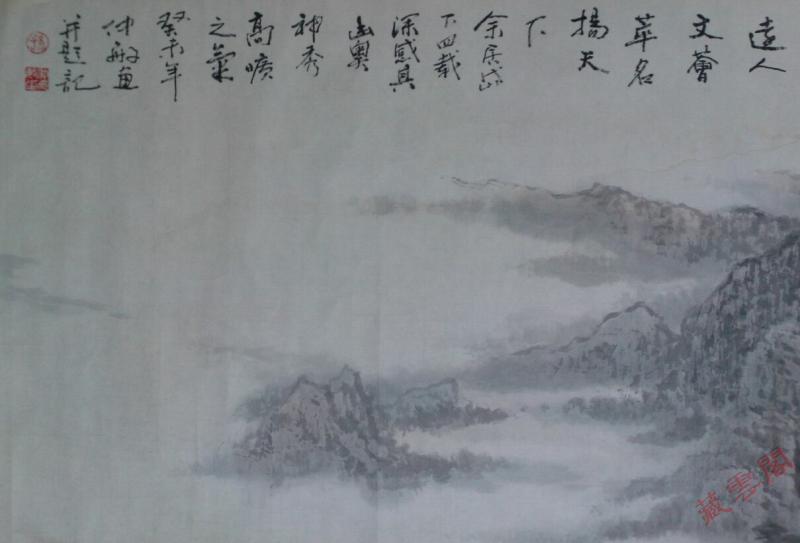 遠人
文薈
萃名
擅天
下
余居岱
下四載
深感其
幽奧
神秀
高曠
之氣
癸未年
仲敏畫
並題記
藏雲閣